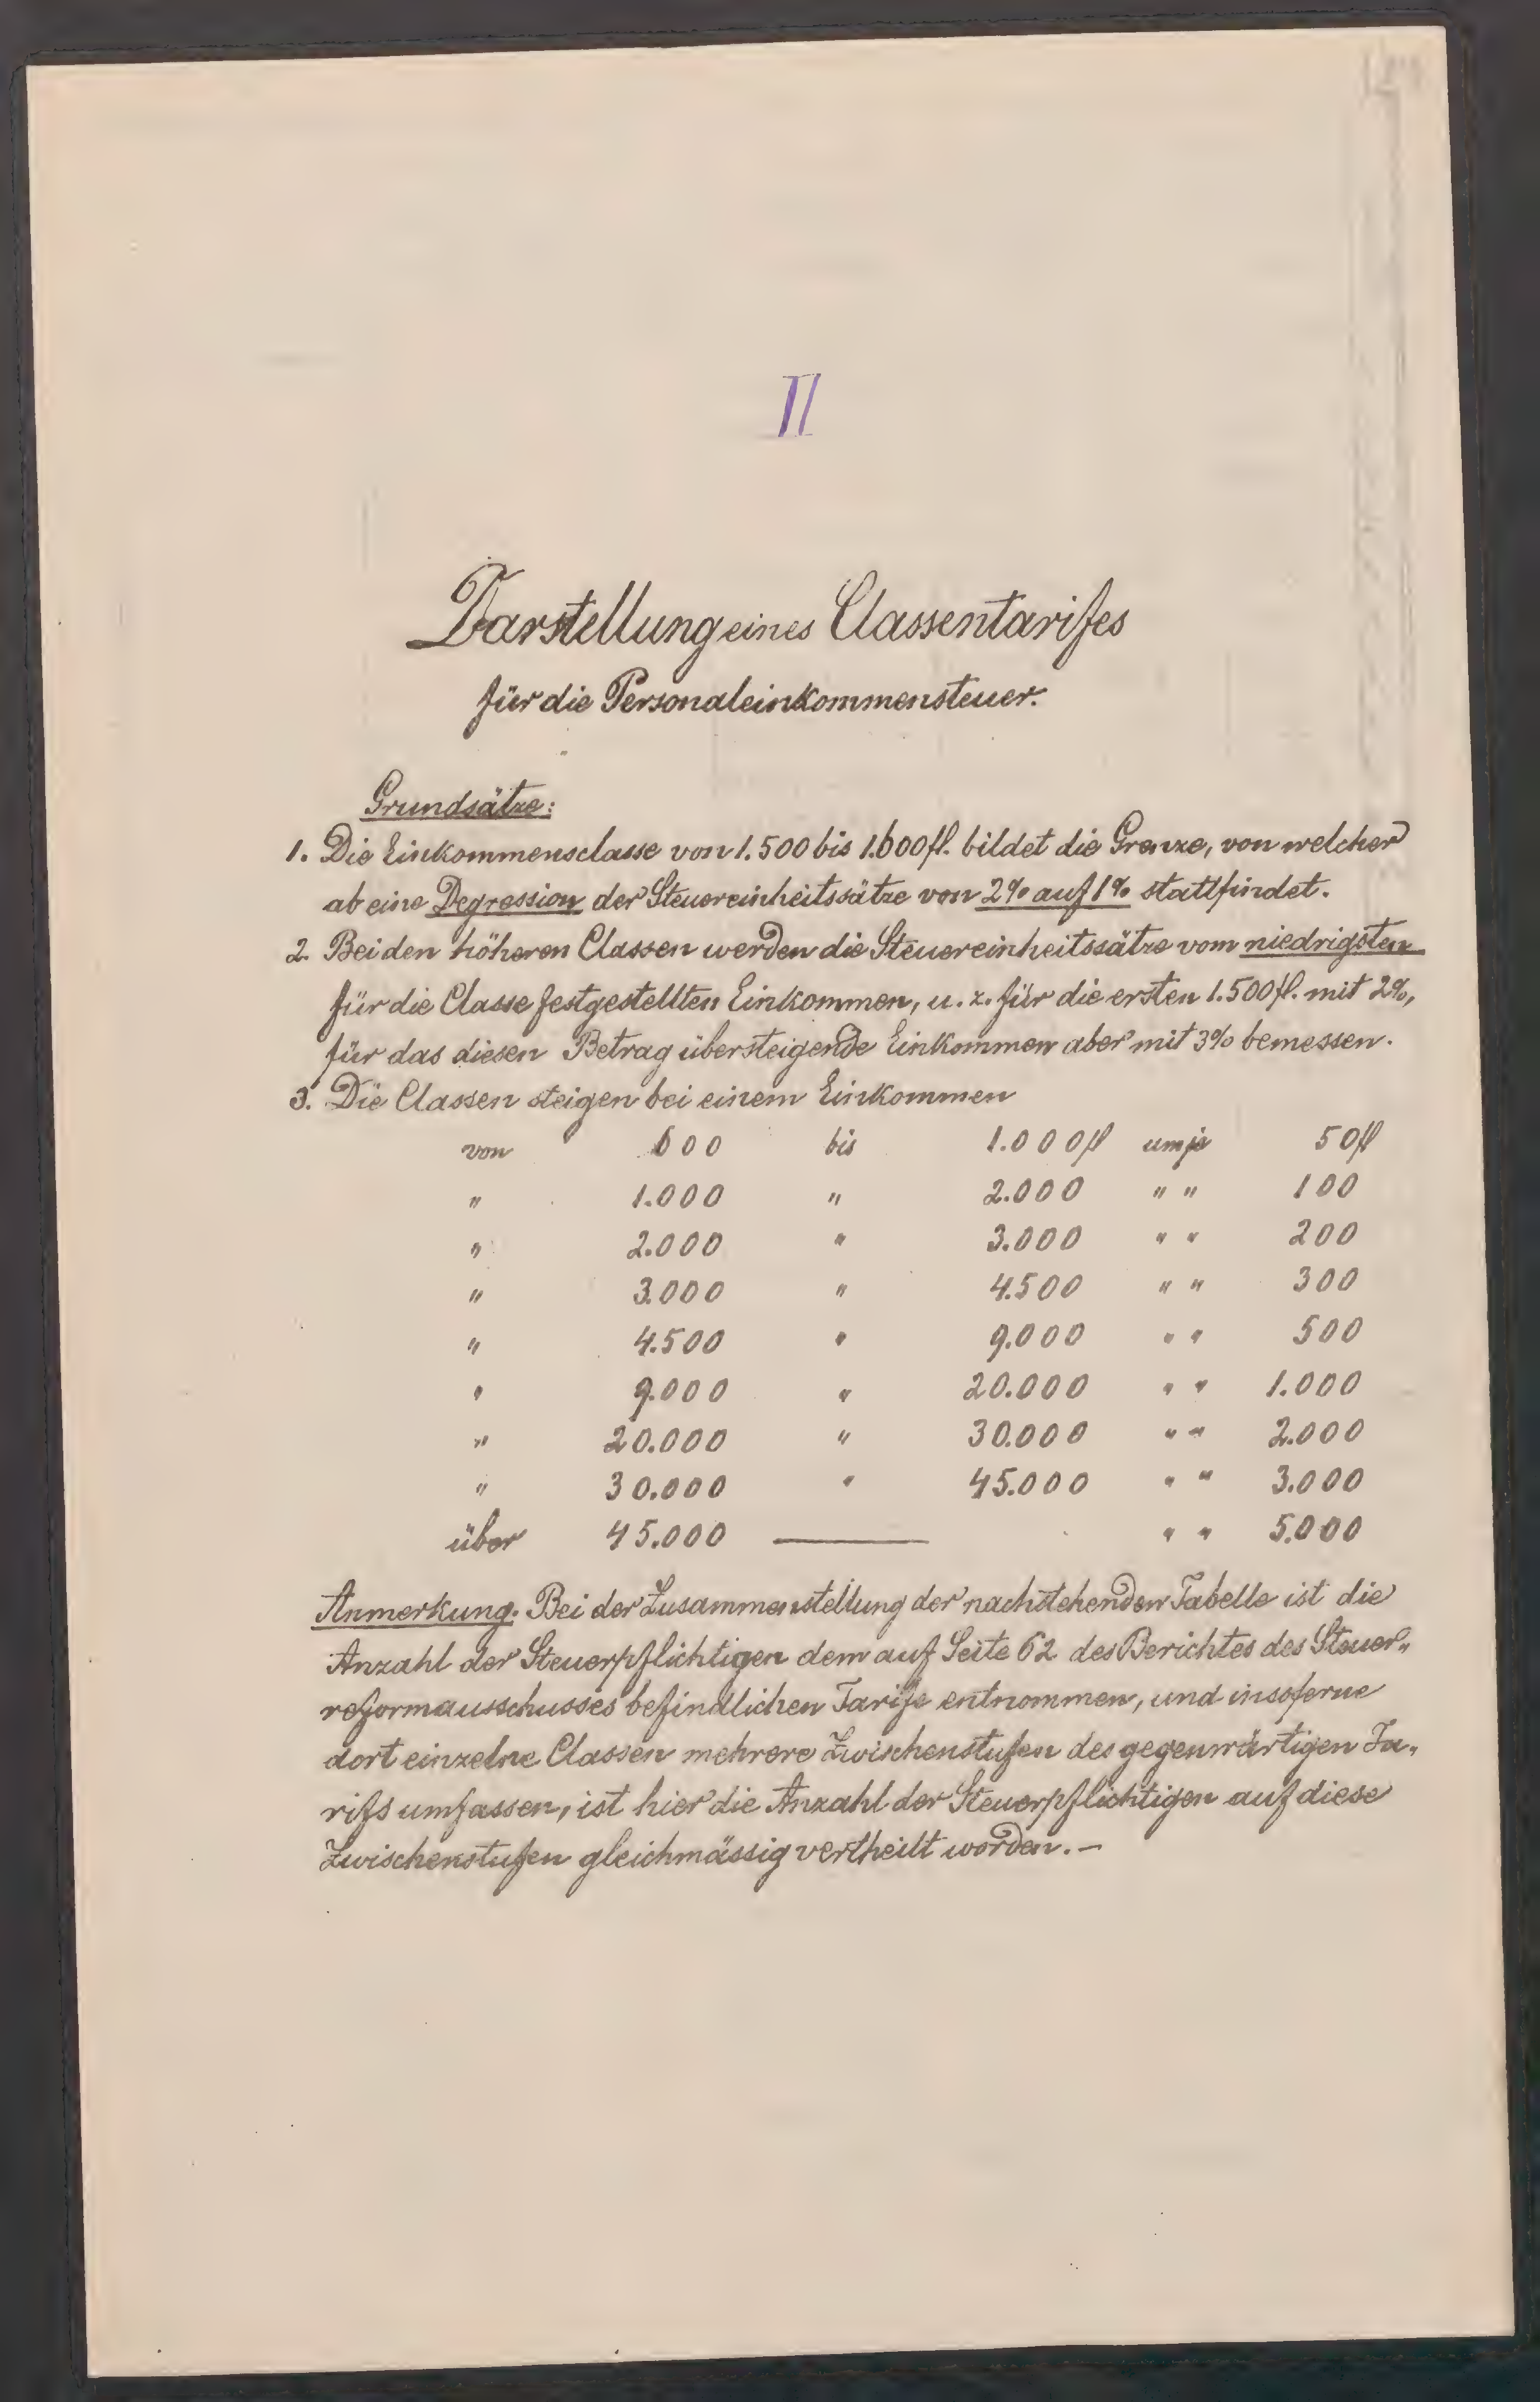 II
Darstellung eines Classentarifes
für die Personaleinkommensteuer.
Grundsätze:
1. Die Einkommensclasse von 1.500 bis 1.600 fl. bildet die Grenze, von welcher
ab eine Degression der Steuereinheitssätze von 2% auf 1% stattfindet.
2. Bei den höheren Classen werden die Steuereinheitssätze vom niedrigsten
für die Classe festgestellten Einkommen, u. z. für die ersten 1.500 fl. mit 2%,
für das diesen Betrag übersteigende Einkommen aber mit 3% bemessen.
3. Die Classen steigen bei einem Einkommen
von 600 bis 1.000 fl um je 50 fl
" 1.000 " 2.000 " " 100
" 2.000 " 3.000 " " 200
" 3.000 " 4.500 " " 300
" 4.500 " 9.000 " " 500
" 9.000 " 20.000 " " 1.000
" 20.000 " 30.000 " " 2.000
" 30.000 " 45.000 " " 3.000
über 45.000 — " " 5.000
Anmerkung. Bei der Zusammenstellung der nachstehenden Tabelle ist die
Anzahl der Steuerpflichtigen dem auf Seite 62 des Berichtes des Steuer„
reformausschusses befindlichen Tarife entnommen, und insoferne
dort einzelne Classen mehrere Zwischenstufen des gegenwärtigen Ta„
rifs umfassen, ist hier die Anzahl der Steuerpflichtigen auf diese
Zwischenstufen gleichmässig vertheilt worden. –